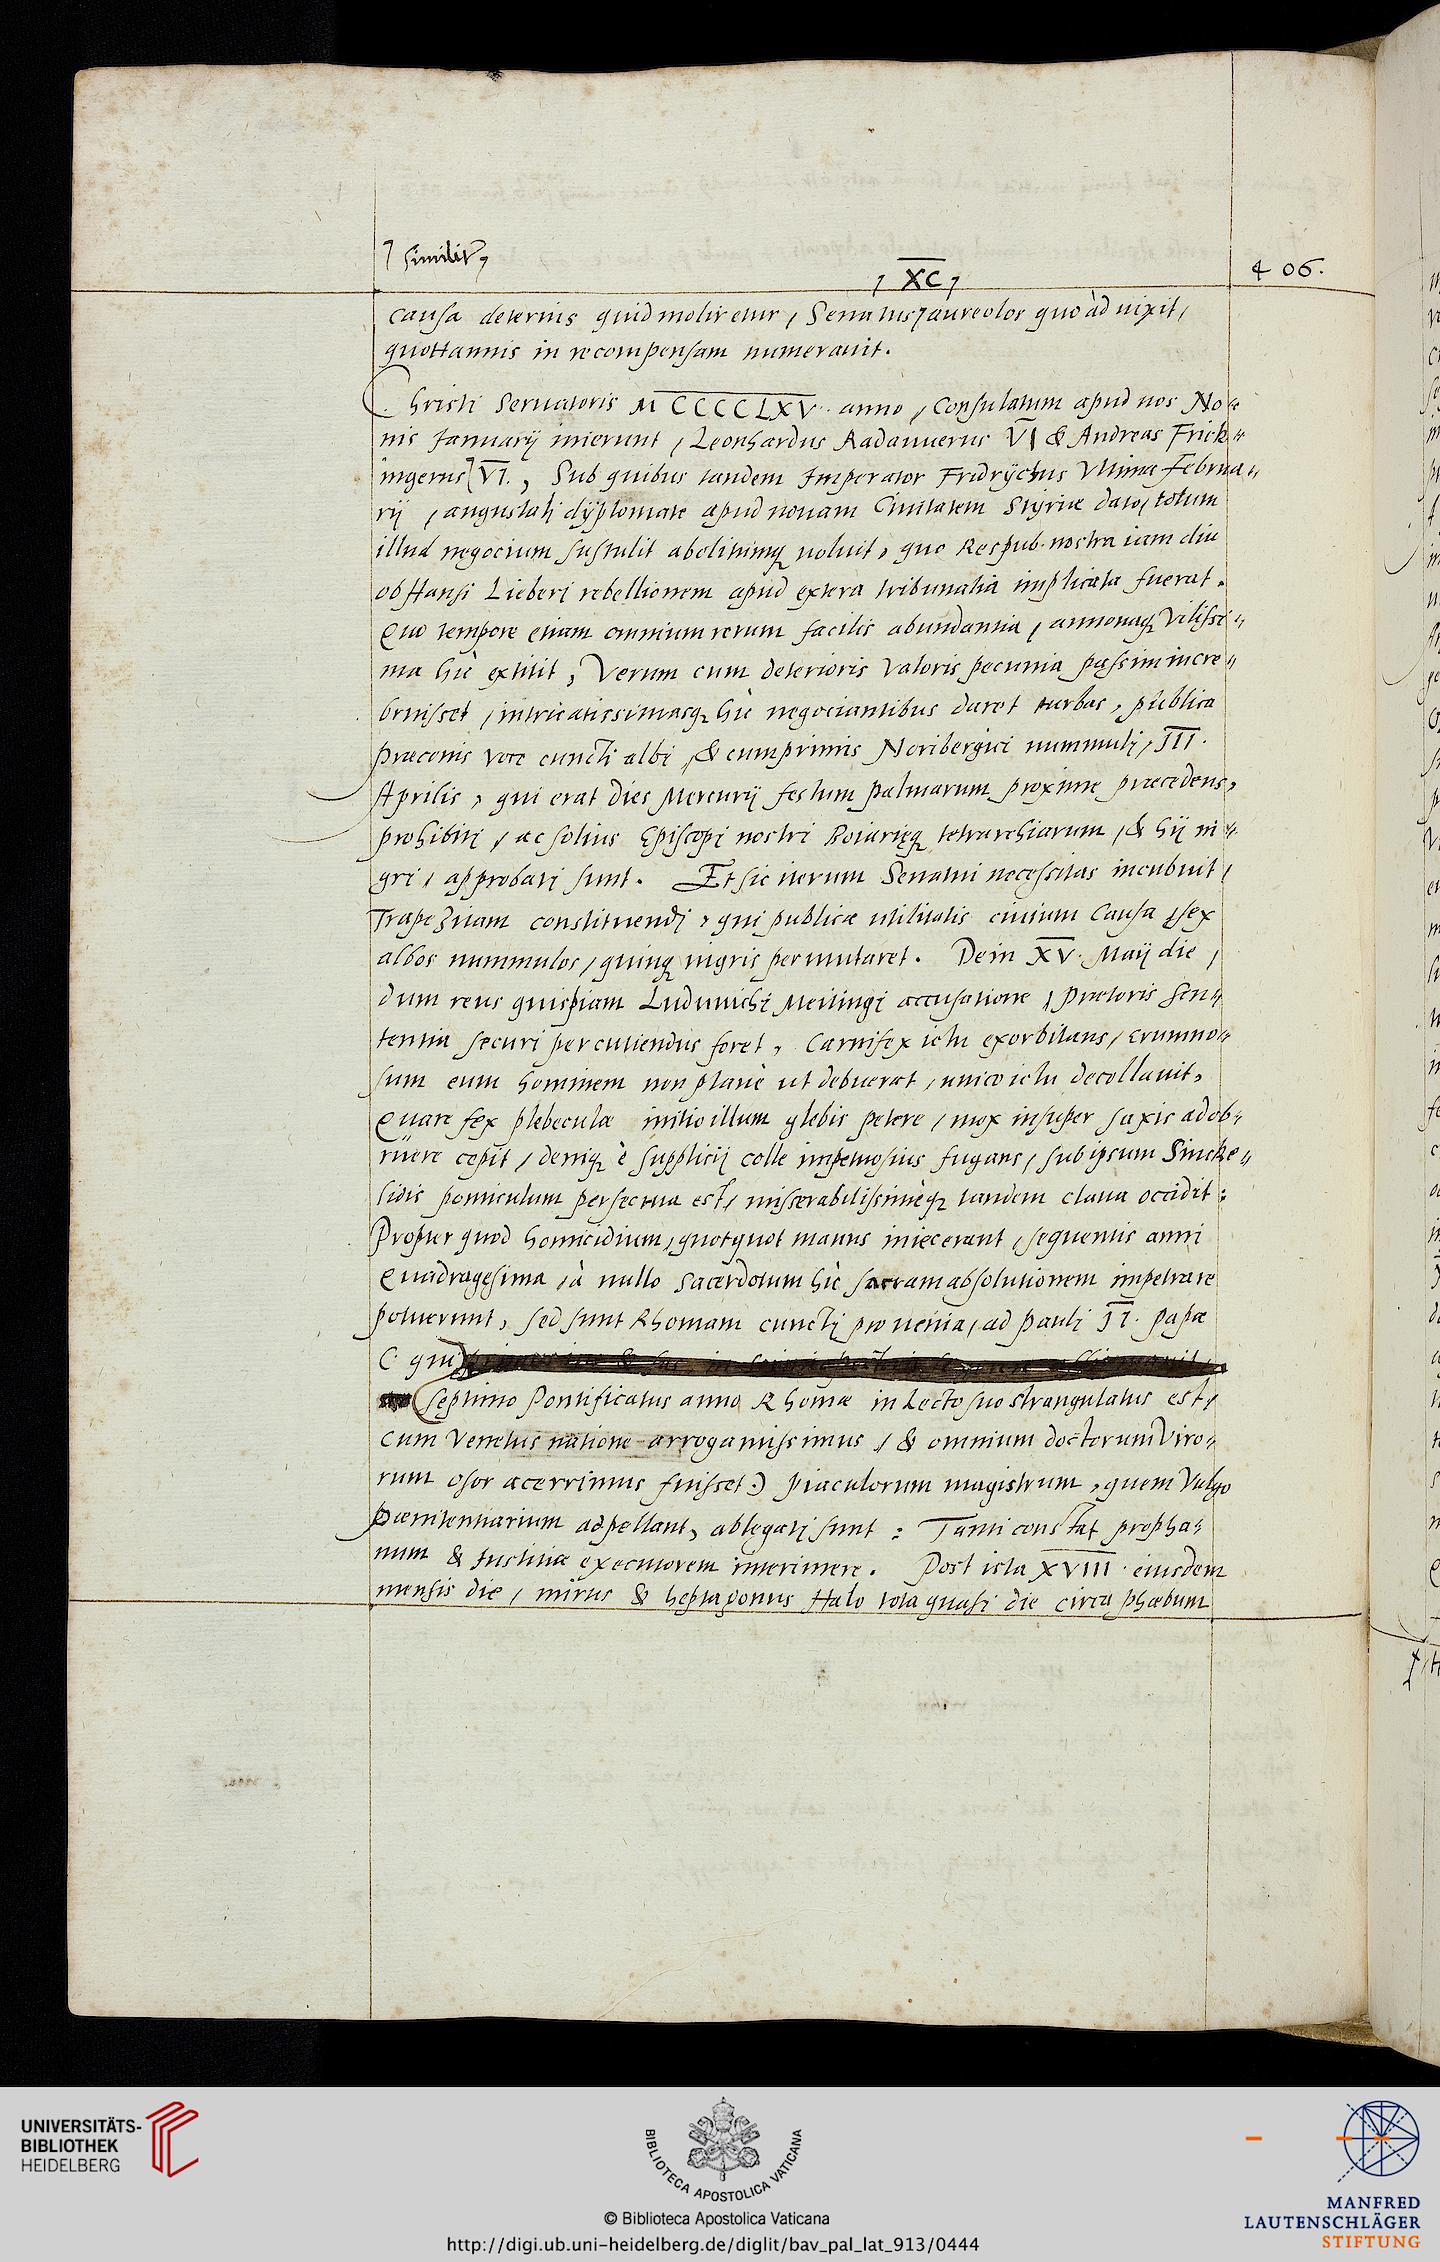 similiter
XC
406.
causa deterius quid moliretur, Senatus aureolos quoàd uixit,
quottannis in recompensam numerauit.
Christi Seruatoris MCCCCLXV. anno, Consulatum apud nos No=
nis Januarij inierunt, Leonhardus Radauuerus VI & Andreas Frick=
ingerus VI., Sub quibus tandem Imperator Fridrÿchus Vltima Februa=
rij, augustali dÿplomate apud nouam Ciuitatem Styriæ dato, totum
illud negocium sustulit abolitumq uoluit, quo Respub. nostra iam diu
ob Hansi Lieberj rebellionem apud extera tribunalia implicata fuerat.
Quo tempore etiam omnium rerum facilis abundantia, annonaq Vilissi=
ma hic extitit, Verum cum deterioris Valoris pecunia passim incre=
bruisset, intricatissimasq hìc negociantibus daret turbas, publica
præconis voce cuncti albi, & cumprimis Noribergici nummulj, III.
Aprilis, qui erat dies Mercurij festum palmarum proxime præcedens,
prohibitj, ac solius Episcopi nostri Boiariæq tetrarchiarum, & hij ni=
gri, approbatj sunt. Et sic iterum Senatui necessitas incubuit,
Trapezitam constituendj, qui publicæ utilitatis ciuium Causa, sex
albos nummulos, quinq nigris permutaret. Dein XV. Maij die,
dum reus quispiam Luduuichi Meitingi accusatione, Prætoris sen=
tentia securi percutiendus foret, Carnifex ictu exorbitans, erumno=
sum eum hominem non planè ut debuerat, unico ictu decollauit,
Quare fex plebeculæ initio illum glebis petere, mox insuper saxis adob=
ruere cepit, deniq è supplicij colle impetuosius fugans, sub ipsum Sincke=
lidis ponticulum persecuta est, misserabilissimèq tandem claua occidit:
Propter quod homicidium, quotquot manus iniecerant, sequentis anni
Quadragesima, à nullo Sacerdotum hìc sacram absolutionem impetrare
potuerunt, sed sunt Rhomam cunctj pro uenia, ad Paulj II. Papæ
( qui
septimo Pontificatus anno Rhomæ in Lecto suo strangulatus est,
cum Venetus natione arrogantissimus, & omnium doctorum Viro=
rum osor acerrimus fuisset.) piaculorum magistrum, quem Vulgo
pœnitentiarium adpellant, ablegatj sunt: Tanti constat propha=
num & Iustitiæ executorem interimere. Post ista XVIII. eiusdem
mensis die, mirus & heptagonus Halo tota quasi die circa phœbum
UNIVERSITÄTS-
BIBLIOTHEK
HEIDELBERG
BIBLIOTECA APOSTOLICA VATICANA
© Biblioteca Apostolica Vaticana
http://digi.ub.uni-heidelberg.de/diglit/bav_pal_lat_913/0444
MANFRED
LAUTENSCHLÄGER
STIFTUNG